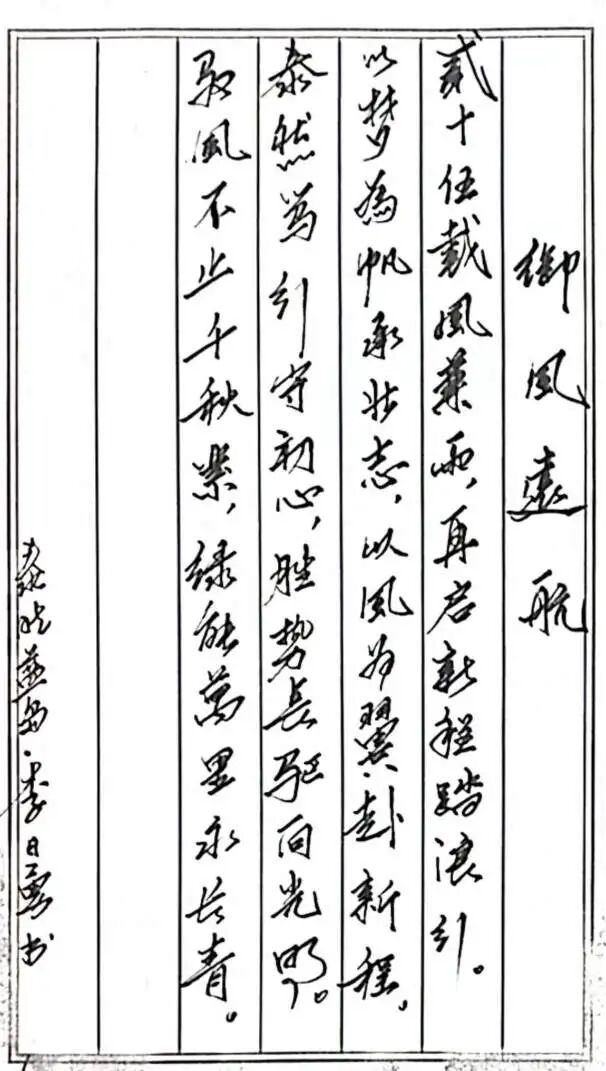 御風遠航
貳十伍載風兼雨，再启新程踏浪行。
以梦為帆承壮志，以風为翼赴新程，
泰然為引守初心，胜势長驱向光明。
驭風不止千秋業，绿能萬里永长青。
泰胜蓝岛·季日勇书